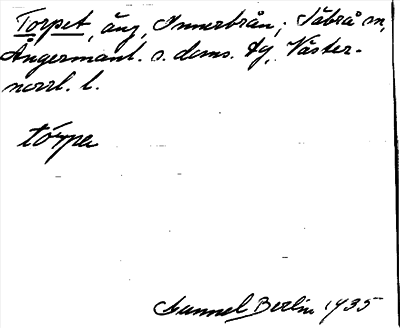 Torpet, äng, Innerbrån; Säbrå sn,
Ångermanl. s. doms. dg, Väster-
norrl. l.
tórpa
Gunnel Berlin 1935